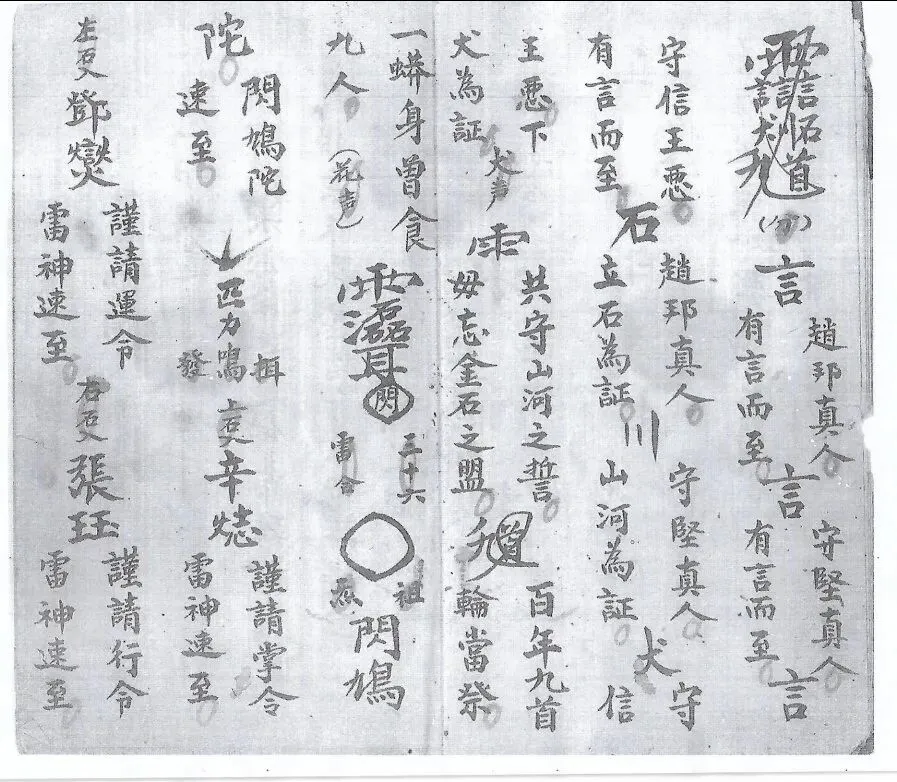 言
趙邦真人
有言而至
言
守堅真人
有言而至
言
守信王惡
有言而至
石
趙邦真人
立石為証
川
守堅真人
山河為証
犬
守
信
王惡下
犬為証
犬声
雨
共守山河之誓
毋忘金石之盟
百年九首
輪當祭
一蟒身曾食
九人
(花声)
閃
三十六
雷令
祖
炁
閃鳩
陀
閃鳩陀
速至
匹力鳴
發
辛
謹請掌令
雷神速至
左
鄧燮
謹請運令
雷神速至
右
張珏
謹請行令
雷神速至